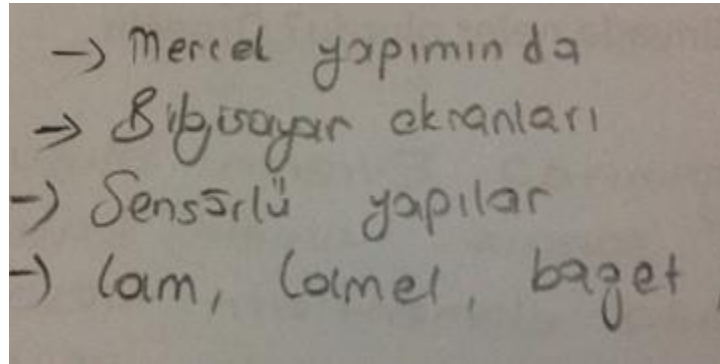 → Mercek yapımında
→ Bilgisayar ekranları
→ Sensörlü yapılar
→ lam, lamel, baget,